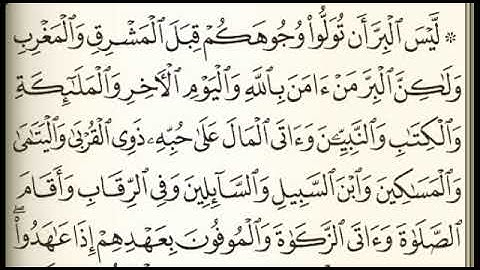 ۞ لَّيْسَ ٱلْبِرَّ أَن تُوَلُّوا۟ وُجُوهَكُمْ قِبَلَ ٱلْمَشْرِقِ وَٱلْمَغْرِبِ
وَلَٰكِنَّ ٱلْبِرَّ مَنْ ءَامَنَ بِٱللَّهِ وَٱلْيَوْمِ ٱلْأَخِرِ وَٱلْمَلَٰٓئِكَةِ
وَٱلْكِتَٰبِ وَٱلنَّبِيِّۦنَ وَءَاتَى ٱلْمَالَ عَلَىٰ حُبِّهِۦ ذَوِى ٱلْقُرْبَىٰ وَٱلْيَتَٰمَىٰ
وَٱلْمَسَٰكِينَ وَٱبْنَ ٱلسَّبِيلِ وَٱلسَّآئِلِينَ وَفِى ٱلرِّقَابِ وَأَقَامَ
ٱلصَّلَوٰةَ وَءَاتَى ٱلزَّكَوٰةَ وَٱلْمُوفُونَ بِعَهْدِهِمْ إِذَا عَٰهَدُوا۟ۖ